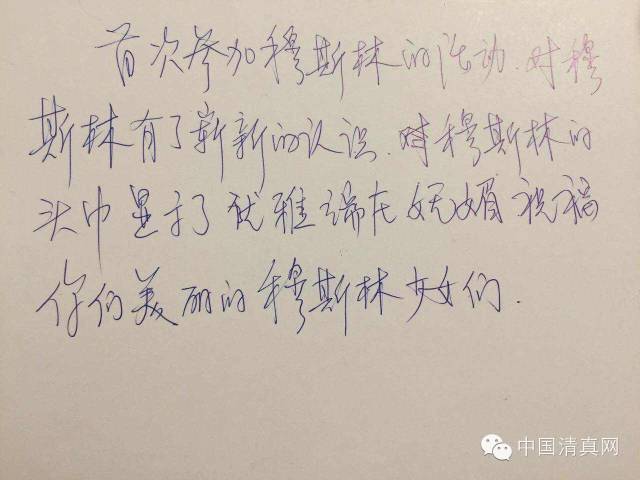 首次参加穆斯林的活动.对穆
斯林有了崭新的认识.对穆斯林的
头巾显示了优雅端庄妩媚祝福
你们美丽的穆斯林少女们.
中国清真网